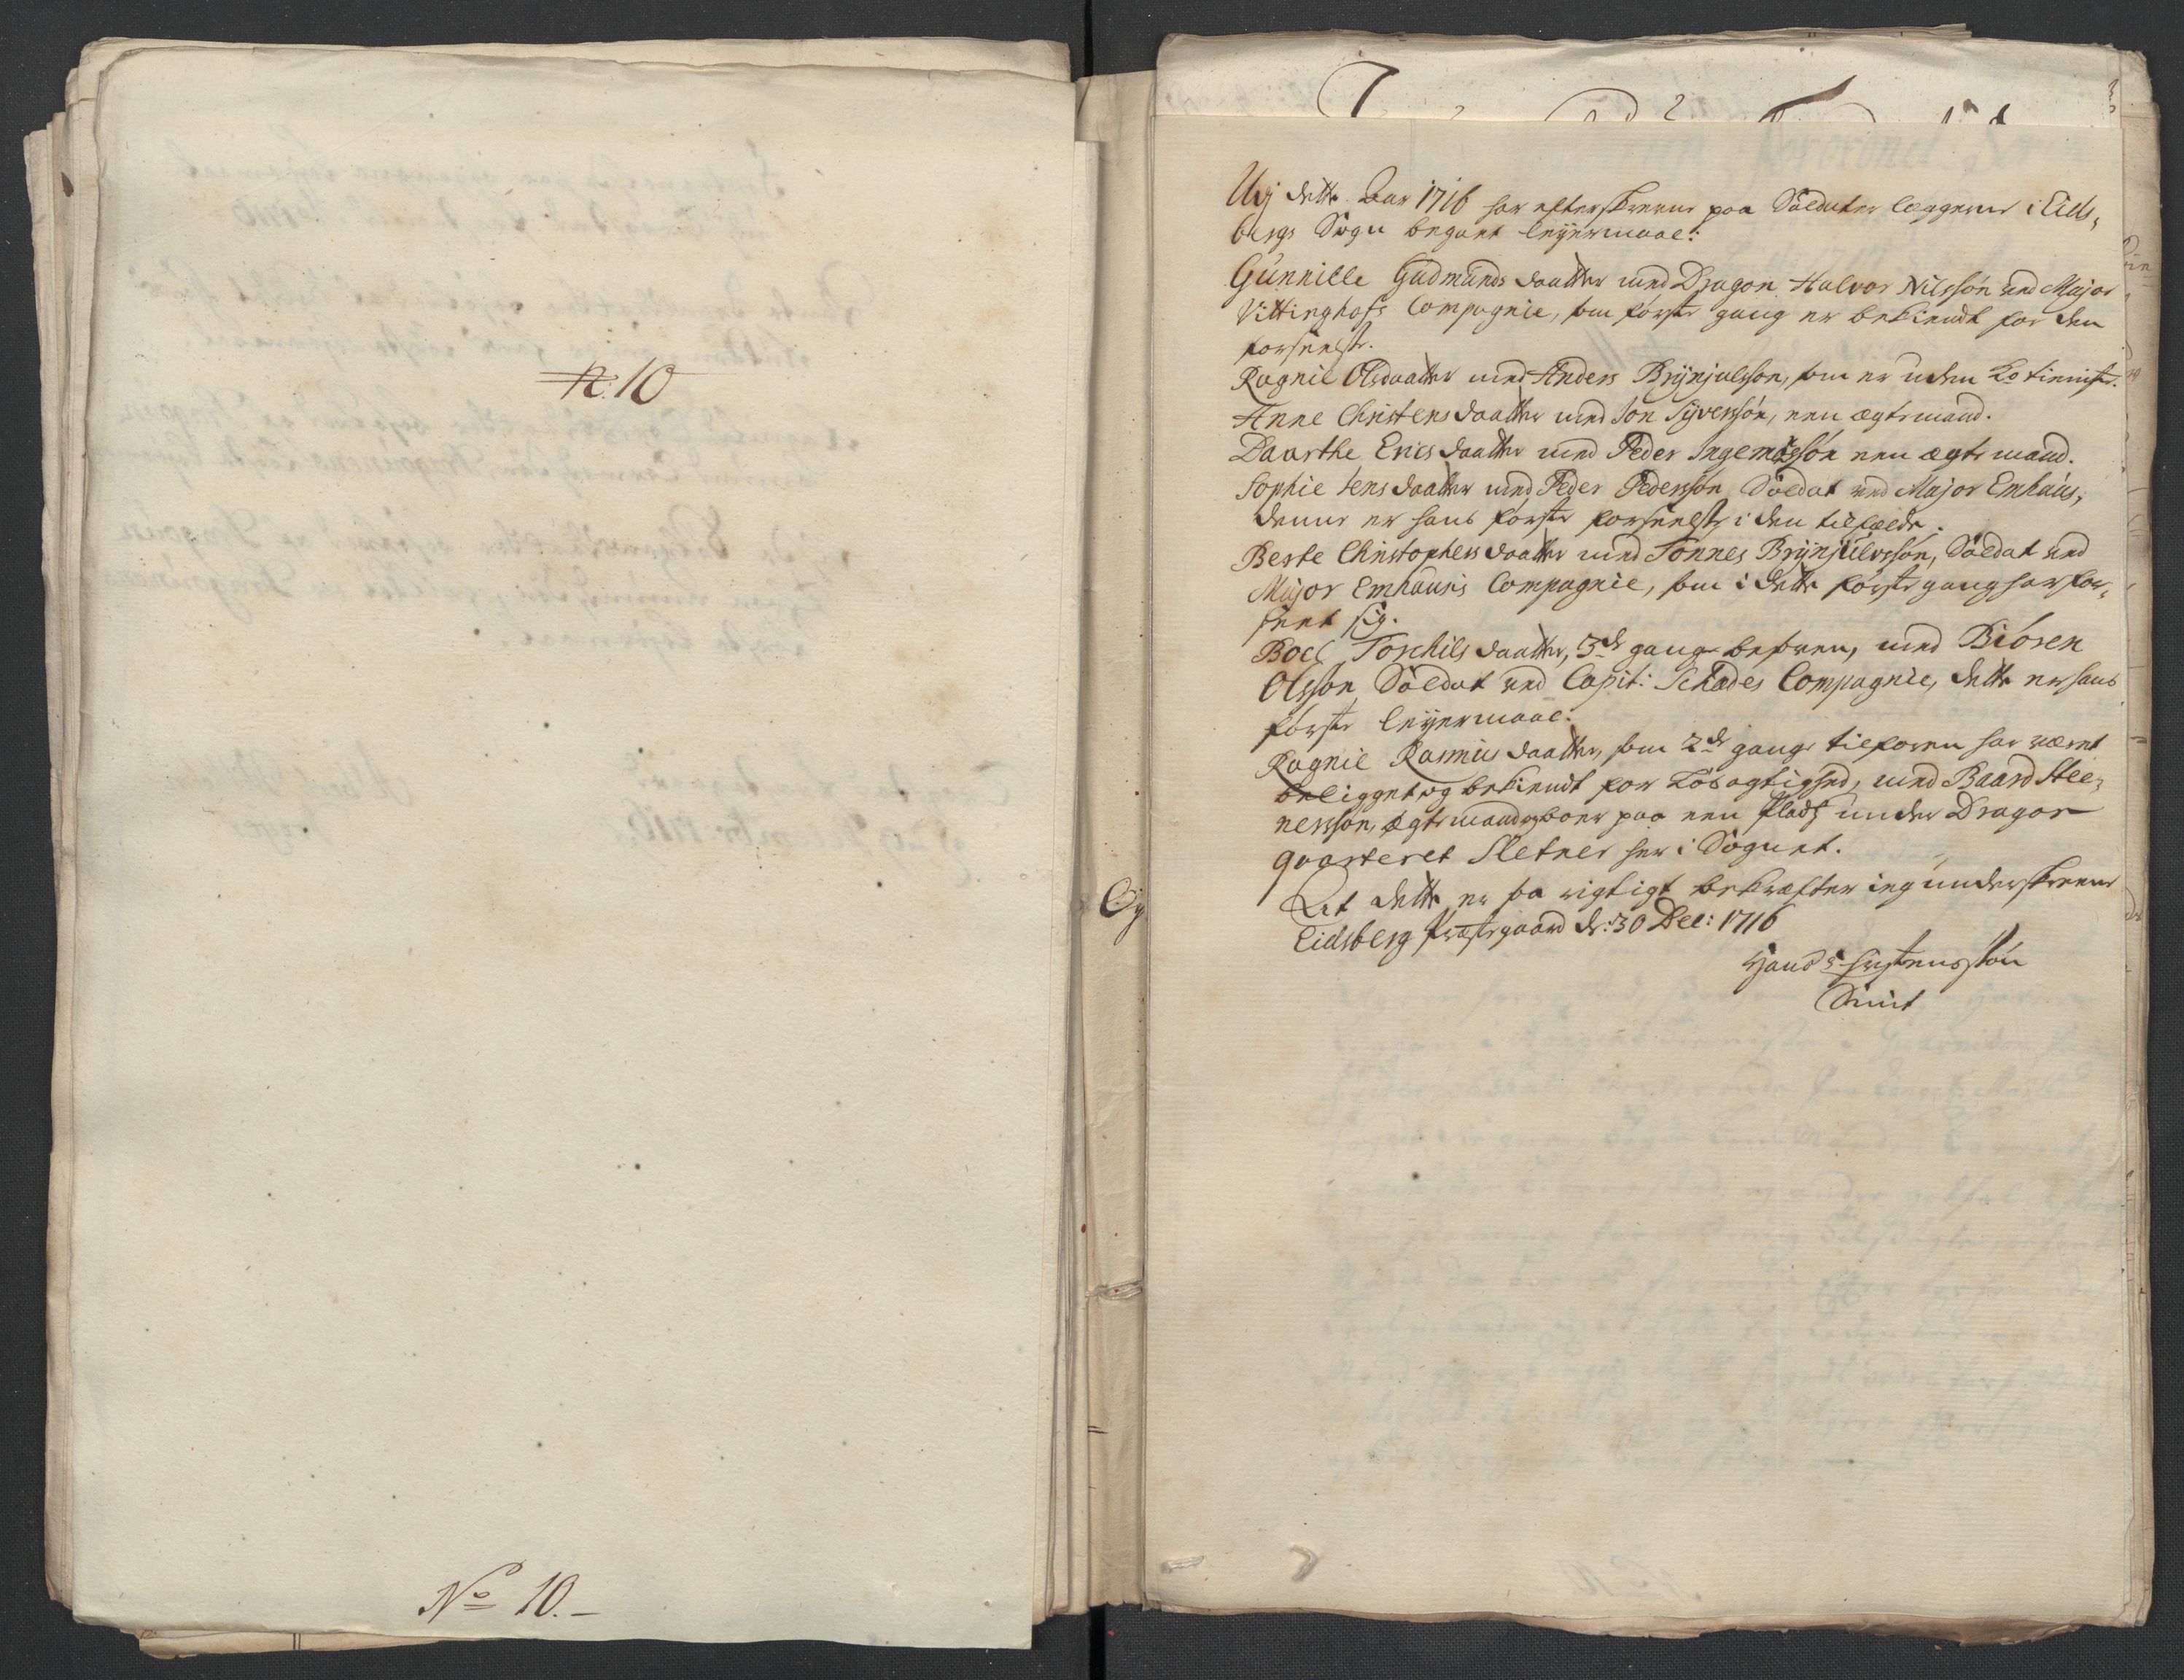 N: 10
No 10.-
Udj dette Aar 1716 har efterskrevne paa Soldater læggerne i Eids-
bergs Sogn begaaet leyermaal:
Gunnille Gudmunds daatter med Dragon Halvor Nilsøn ved Major
Vittinghofs Compagnie, som første gang er bekiendt for den
forseelse.
Ragnil Olsdaatter med Anders Brynjulsøn, som er uden Ko tieniste.
Anne Christens daatter med Jon Syversøn, een ægtemand.
Daarthe Erics daatter med Peder Ingemørsøn een ægte mand.
Sophie Jens daatter med Peder Pedersøn Soldat ved Major Emhaus,
denne er hans første forseelse i den tilfælde.
Berte Christophers daatter med Tønnes Brynjulvsøn, Soldat ved
Major Emhausis Compagnie, som i dette første gang har for-
seet sig.
Boel Torchils daatter, 3de gang besoven, med Biøren
Olsøn Soldat ved Capit: Schades Compagnie, dette er hans
første leyermaal.
Ragnil Rasmus daatter, som 2de gange tilforen har været
beligget og bekiendt for Løsagtighed, med Baard Stee-
nersøn, ægte mand og boer paa een Pladtz under Dragon
qvarteret Sletner her i Sognet.
At dette er saa rigtigt bekræfter ieg underskrevne
Eidsberg Præstegaard d: 30 Dec: 1716
Hans Christensøn
Smit